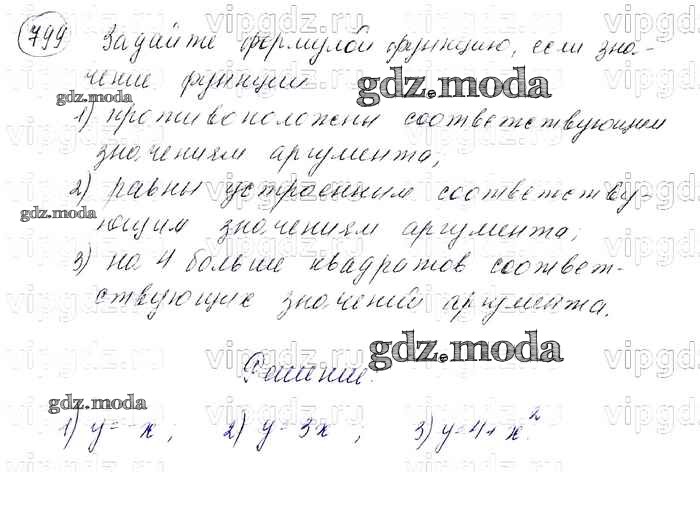 799 Задайте формулой функцию, если зна-
чение функции
1) противоположны соответствующим
значениям аргумента;
2) равны утроенным соответству-
ющим значениям аргумента;
3) на 4 больше квадратов соответ-
ствующих значений аргумента.
Решение.
1) y = -x ; 2) y = 3x ; 3) y = 4 + x².
gdz.moda
gdz.moda
gdz.moda
gdz.moda
gdz.moda
vipgdz.ru